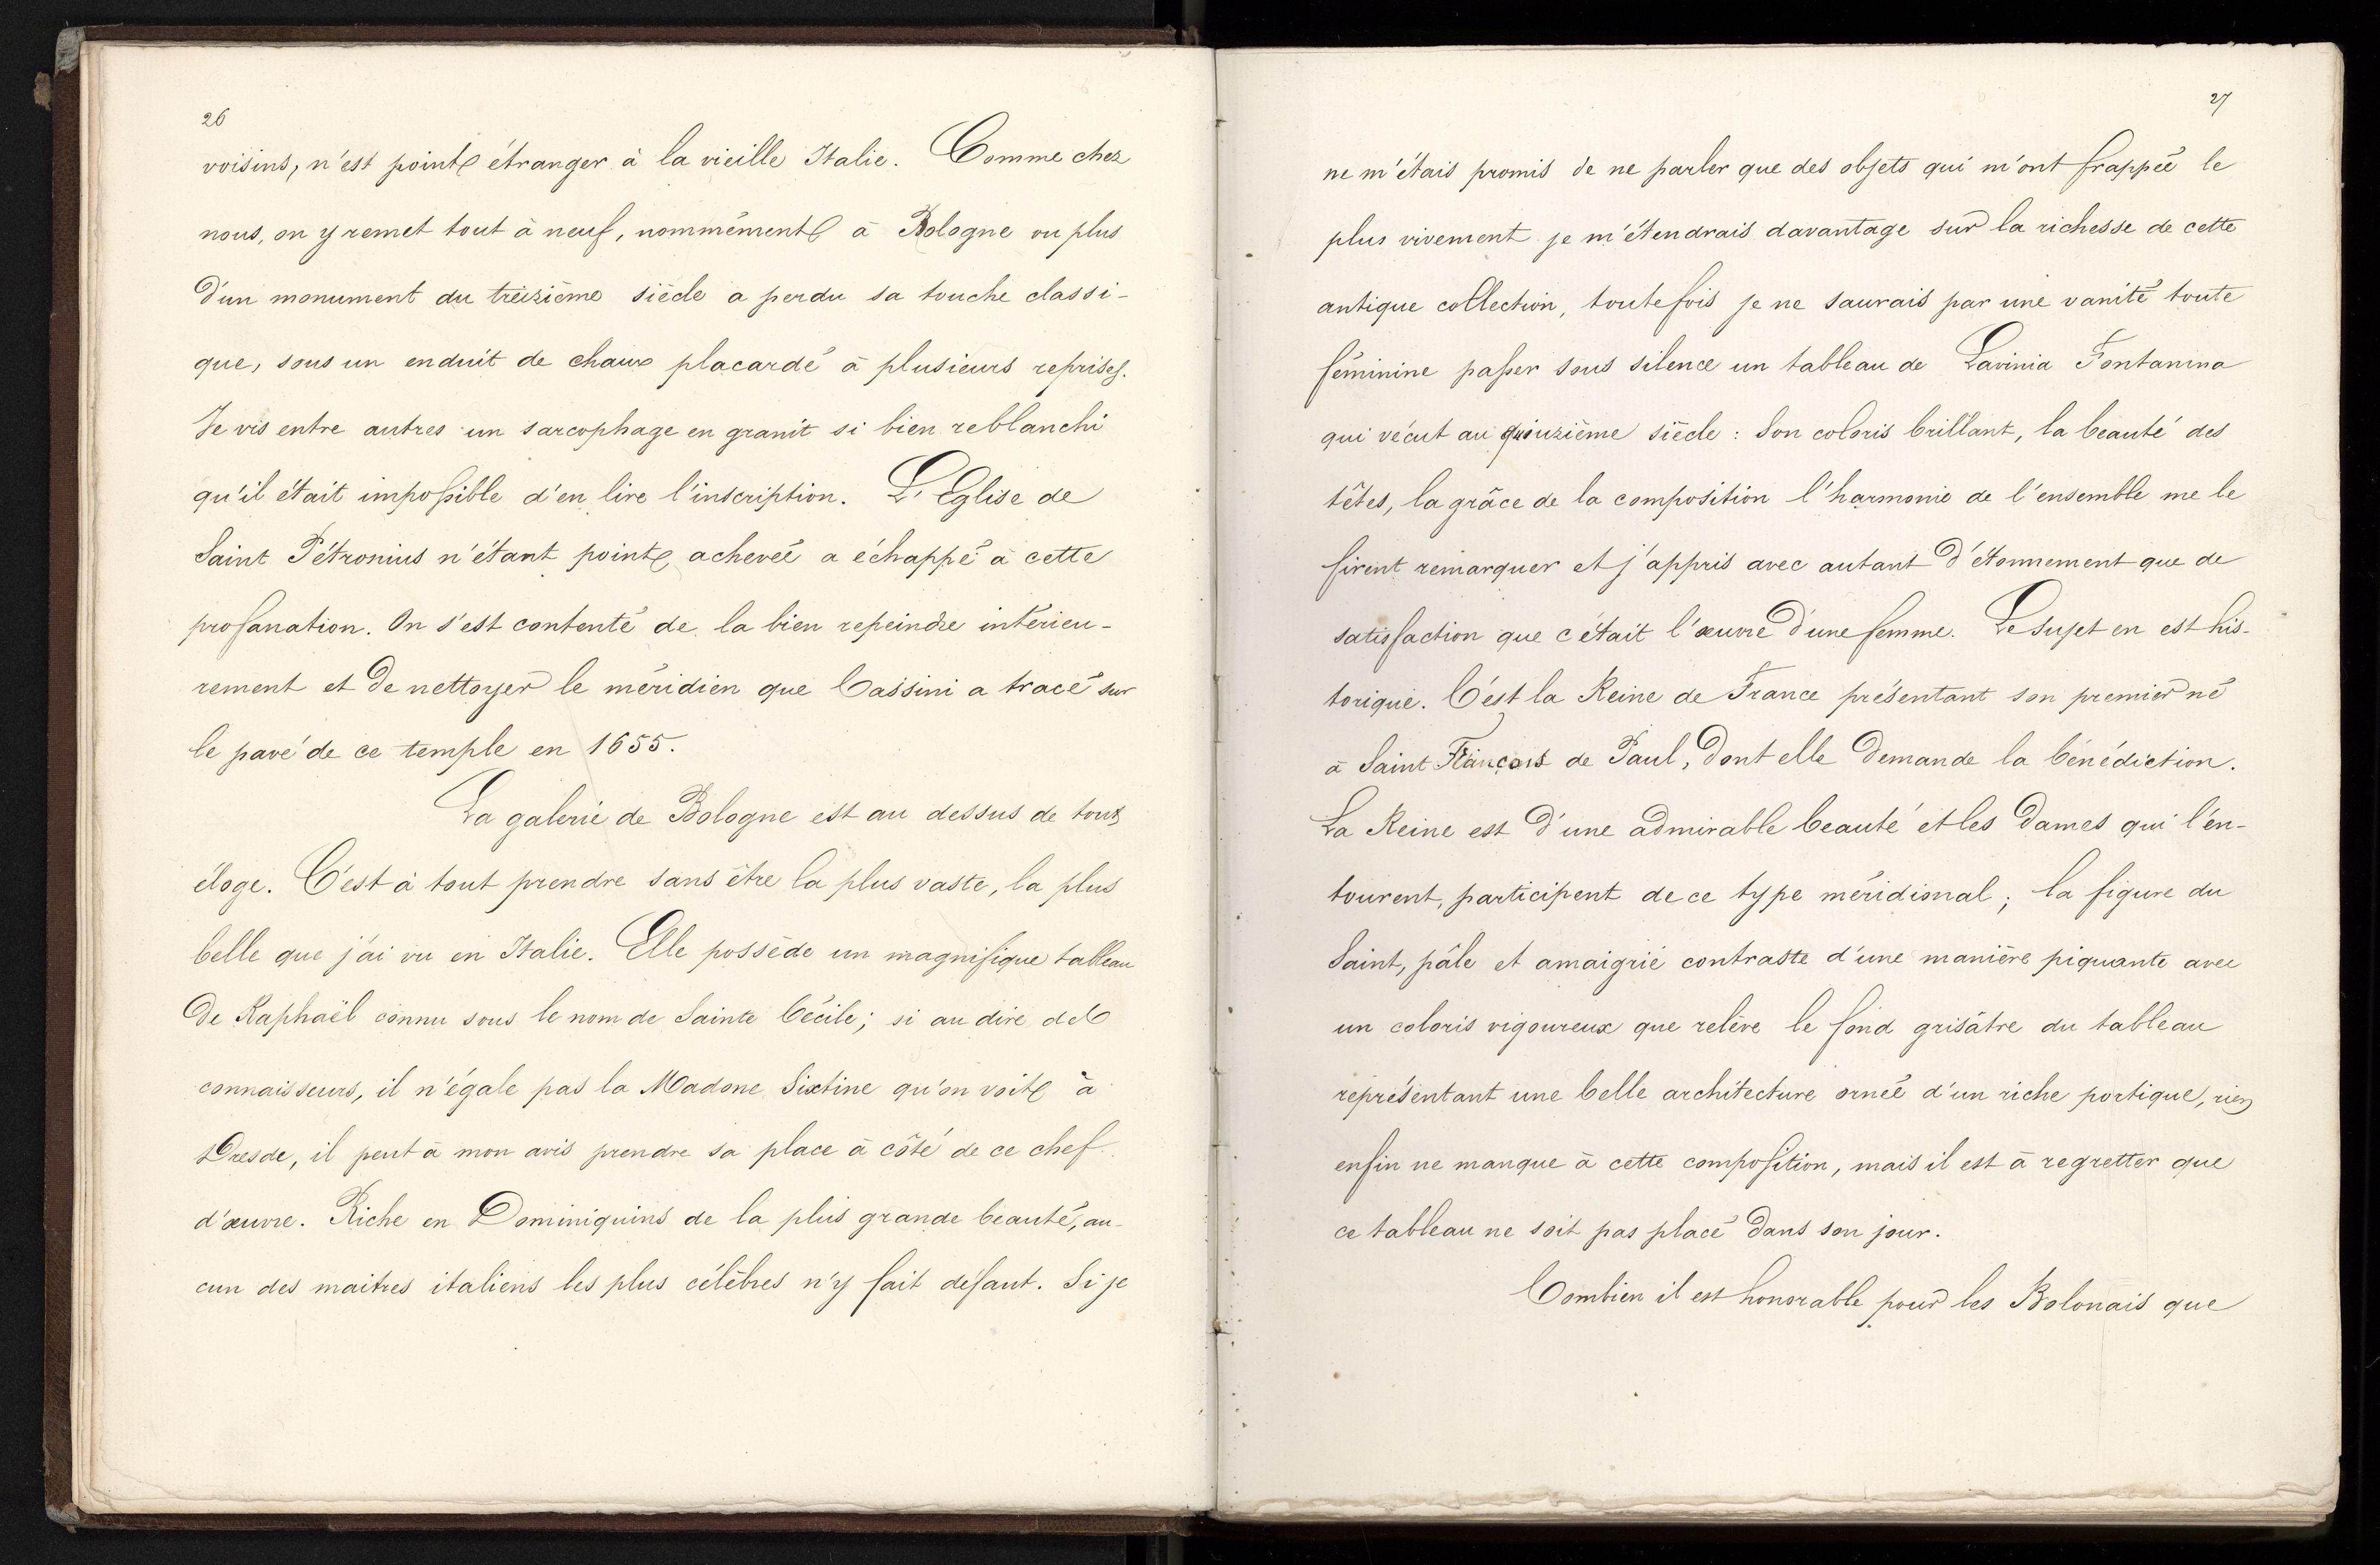 26
voisins, n'est point étranger à la vieille Italie. Comme chez
nous, on y remet tout à neuf, nommément à Bologne ou plus
d'un monument du treizième siècle a perdu sa touche classi-
que, sous un enduit de chaux placardé à plusieurs reprises.
Je vis entre autres un sarcophage en granit si bien reblanchi
qu'il était impossible d'en lire l'inscription. L'Eglise de
Saint Pétronius n'étant point achevée a échappé à cette
profanation. On s'est contenté de la bien repeindre intérieu-
rement et de nettoyer le méridien que Cassini a tracé sur
le pavé de ce temple en 1655.
La galerie de Bologne est au dessus de tout
éloge. C'est à tout prendre sans être la plus vaste, la plus
belle que j'ai vu en Italie. Elle possède un magnifique tableau
de Raphaël connu sous le nom de Sainte Cécile; si au dire des
connaisseurs, il n'égale pas la Madone Sixtine qu'on voit à
Dresde, il peut à mon avis prendre sa place à côté de ce chef
d'œuvre. Riche en Dominiquins de la plus grande beauté, au-
cun des maitres italiens les plus célèbres n'y fait défaut. Si je
27
ne m'étais promis de ne parler que des objets qui m'ont frappée le
plus vivement je m'étendrais davantage sur la richesse de cette
antique collection, toutefois je ne saurais par une vanité toute
féminine passer sous silence un tableau de Lavinia Fontanna
qui vécut au quinzième siècle : Son coloris brillant, la beauté des
têtes, la grâce de la composition l'harmonie de l'ensemble me le
firent remarquer et j'appris avec autant d'étonnement que de
satisfaction que c'était l'œuvre d'une femme. Le sujet en est his-
torique. C'est la Reine de France présentant son premier né
à Saint François de Paul, dont elle demande la bénédiction.
La Reine est d'une admirable beauté et les dames qui l'en-
tourent, participent de ce type méridional; la figure du
Saint, pâle et amaigrie contraste d'une manière piquante avec
un coloris vigoureux que relève le fond grisâtre du tableau
représentant une belle architecture ornée d'un riche portique, rien
enfin ne manque à cette composition, mais il est à regretter que
ce tableau ne soit pas placé dans son jour.
Combien il est honorable pour les Bolonais que